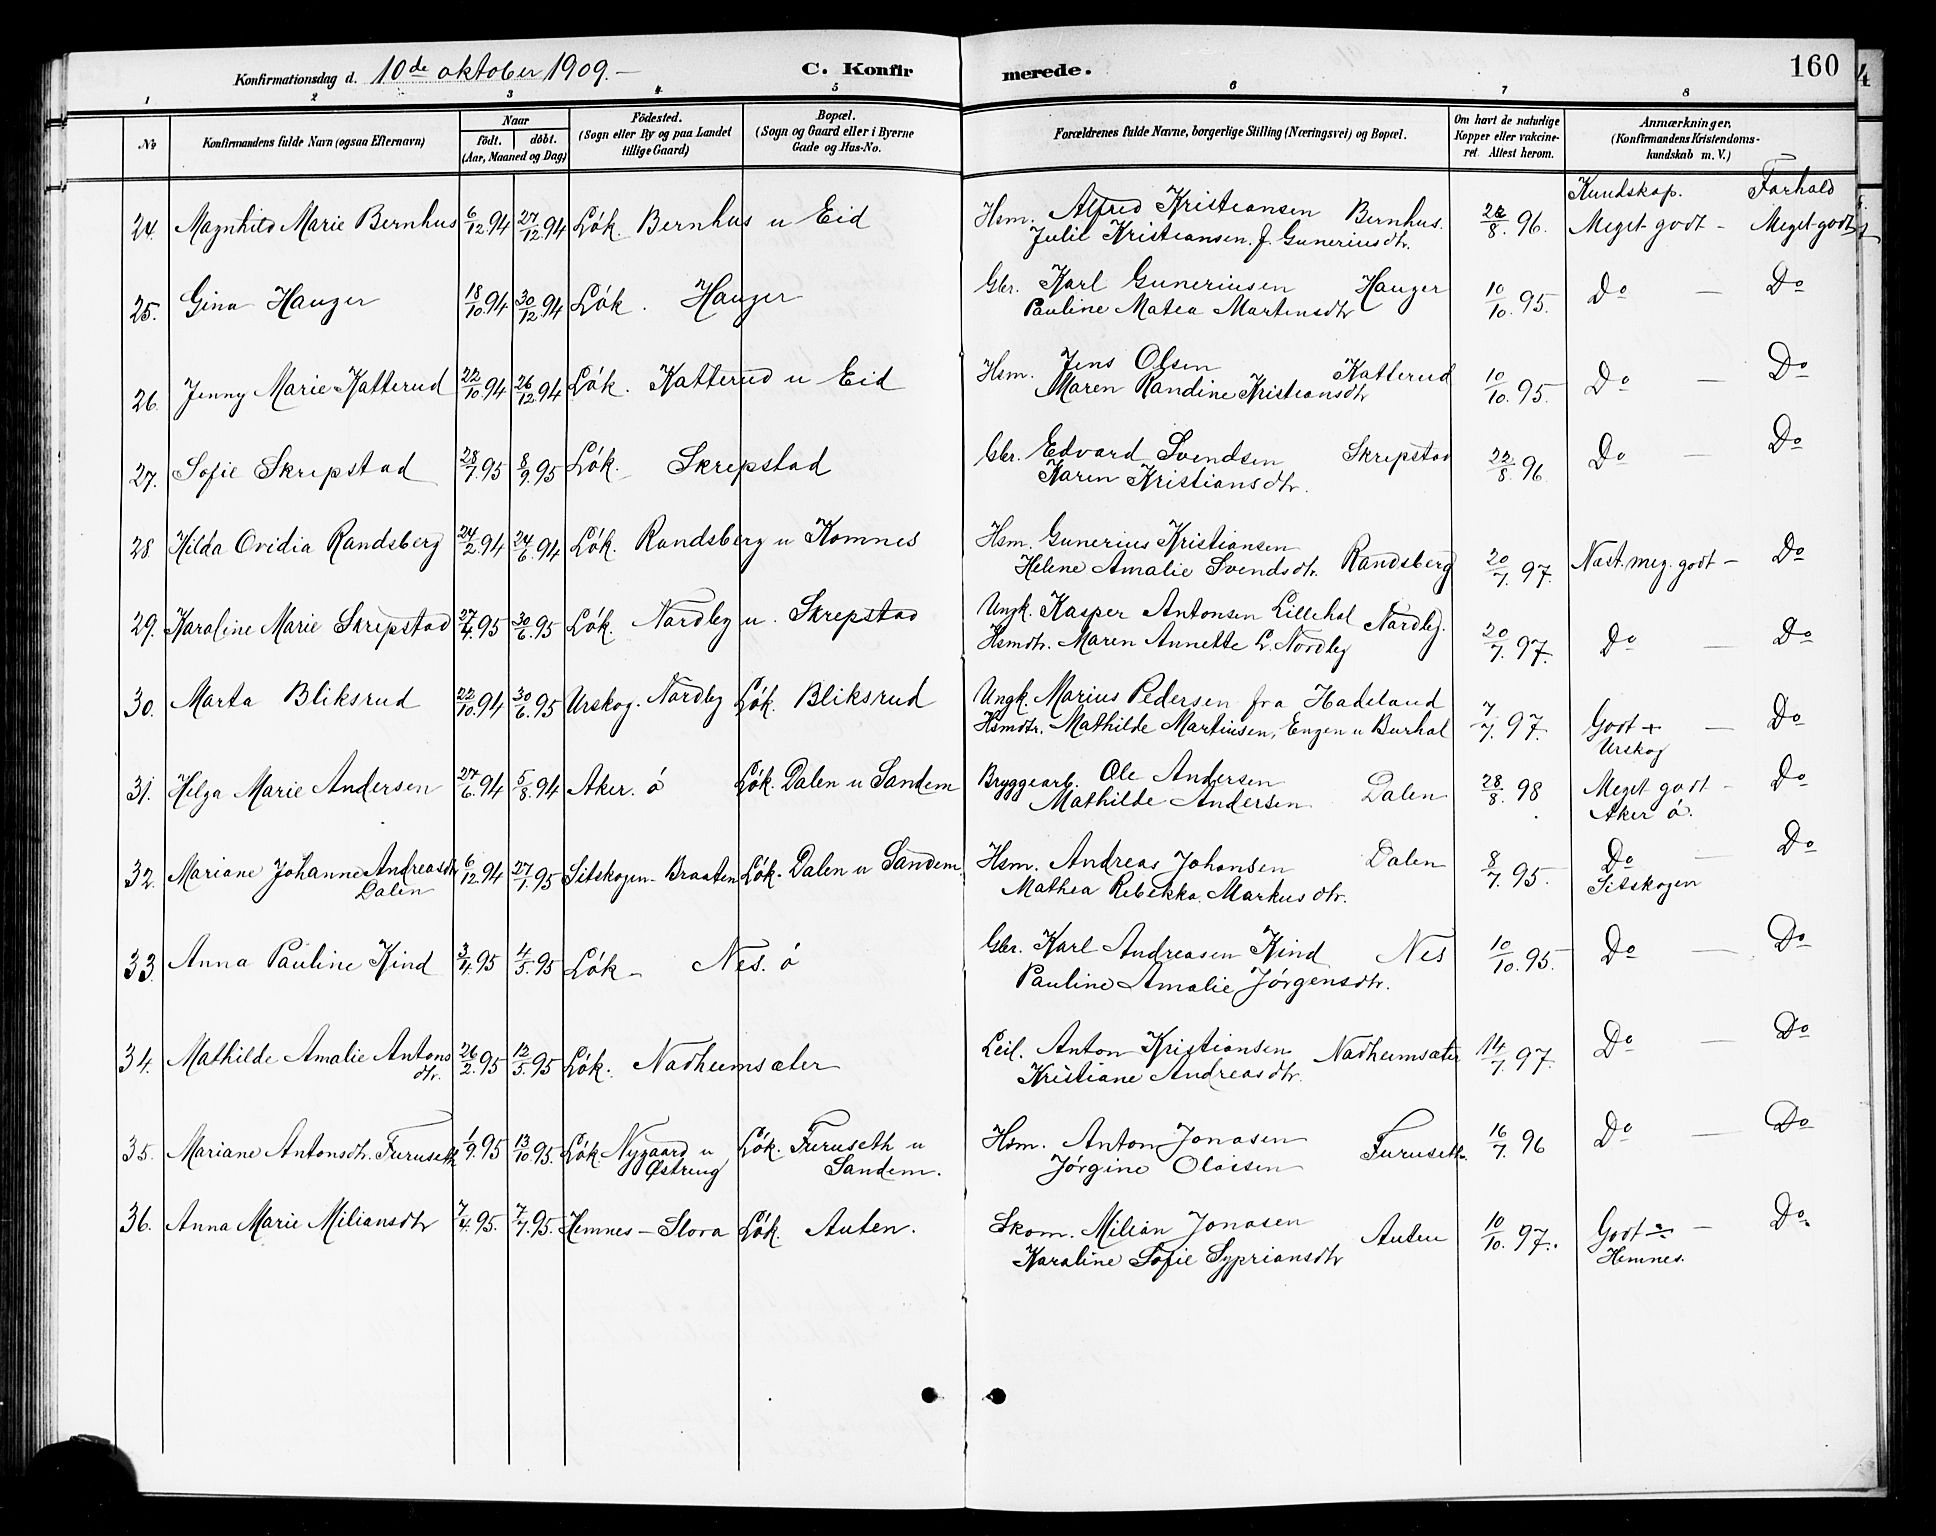 Konfirmationsdag d. 10de oktober 1909.—
C. Konfirmerede.
160
4
1 2 3 4 5 6 7 8
No
Konfirmandens fulde Navn (ogsaa Efternavn)
Naar
födt. döbt.
(Aar, Maaned og Dag)
Födested.
(Sogn eller By og paa Landet
tillige Gaard)
Bopæl.
(Sogn og Gaard eller i Byerne
Gade og Hus-No.
Forældrenes fulde Navne, borgerlige Stilling (Næringsvei) og Bopæl.
Om havt de naturlige
Kopper eller vakcine-
ret. Attest herom.
Anmærkninger,
(Konfirmandens Kristendoms-
kundskab m. V.)
Kundskap. Forhold
24. Magnhild Marie Bernhus 6/12.94 27/12.94 Lök. Bernhus u Eid Hsm. Alfred Kristiansen Bernhus. 8. 96. Meget godt – Meget godt
Julie Kristiansen. f. Guneriusdtr.
25. Gina Hauger 18/10.94 30/12.94 Lök. Hauger Gbr. Karl Guneriusen Hauger 10/10.95. Do — Do
Pauline Matea Martinsdtr
26. Jenny Marie Katterud 22/10.94 26/12.94 Lök. Katterud u Eid Hsm. Jens Olsen Katterud 10/10.95. Do — Do
Maren Randine Kristiansdtr
27. Sofie Skrepstad 28/7.95 8/9.95 Lök. Skrepstad Gbr. Edvard Svendsen Skrepstad 22/8.96 Do — Do
Karen Kristiansdtr.
28 Hilda Ovidia Randsberg 24/2.94 24/6.94 Lök. Randsberg u Komnes Hsm. Gunerius Kristiansen
Helene Amalie Svendsdtr. Randsberg 20/7.97. Næst. meg. godt – Do
29. Karoline Marie Skrepstad 27/4.95 30/6.95 Lök. Nordby u. Skrepstad Ungk. Kasper Antonsen Lillehol Nordby.
Hsmdtr. Maren Annette L. Nordby 20/7.97. Do — Do
30. Marta Bliksrud 22/10.94 30/6.95 Urskog. Nordby Lök. Bliksrud Ungk. Marius Pedersen fra Hadeland
Hsmdtr. Mathilde Martinsen, Engen u Burhol 7/7.97. Godt + — Do
Urskog
31. Helga Marie Andersen 27/6.94 5/8.94 Aker. ö Lök. Dalen u Sandem Bryggearb. Ole Andersen
Mathilde Andersen Dalen 28/8.98 Meget godt – Do
Aker ö.
32. Mariane Johanne Andreasdtr 6/12.94 27/1.95 Sitskogen – Braaten Lök. Dalen u Sandem Hsm. Andreas Johansen Dalen 8/7.95. Do — Do
Dalen
Mathea Rebekka Markusdtr. Sitskogen
33 Anna Pauline Kind 3/4.95 4/5.95 Lök – Nes. ö Gbr. Karl Andreasen Kind Nes 10/10.95. Do — Do
Pauline Amalie Jörgensdtr.
34. Mathilde Amalie Antons 26/2.95 12/5.95 Lök. Nadheimsæter Leil. Anton Kristiansen Nadheimsæter 14/7.97. Do — Do
dtr.
Kristiane Andreasdtr.
35. Mariane Antonsdtr. Furuseth 1/9.95 13/10.95. Lök. Nygaard u Lök. Furuseth u Hsm. Anton Jonasen Furuseth. 16/7.96 Do — Do
Østreng Sandem. Jørgine Olaisen
36. Anna Marie Miliansdtr 7/4.95. 7/7.95. Hemnes – Slora Lök. Auten. Skom. Milian Jonasen Auten 10/10.97. Godt ÷ – Do
Karoline Sofie Sypriansdtr Hemnes.